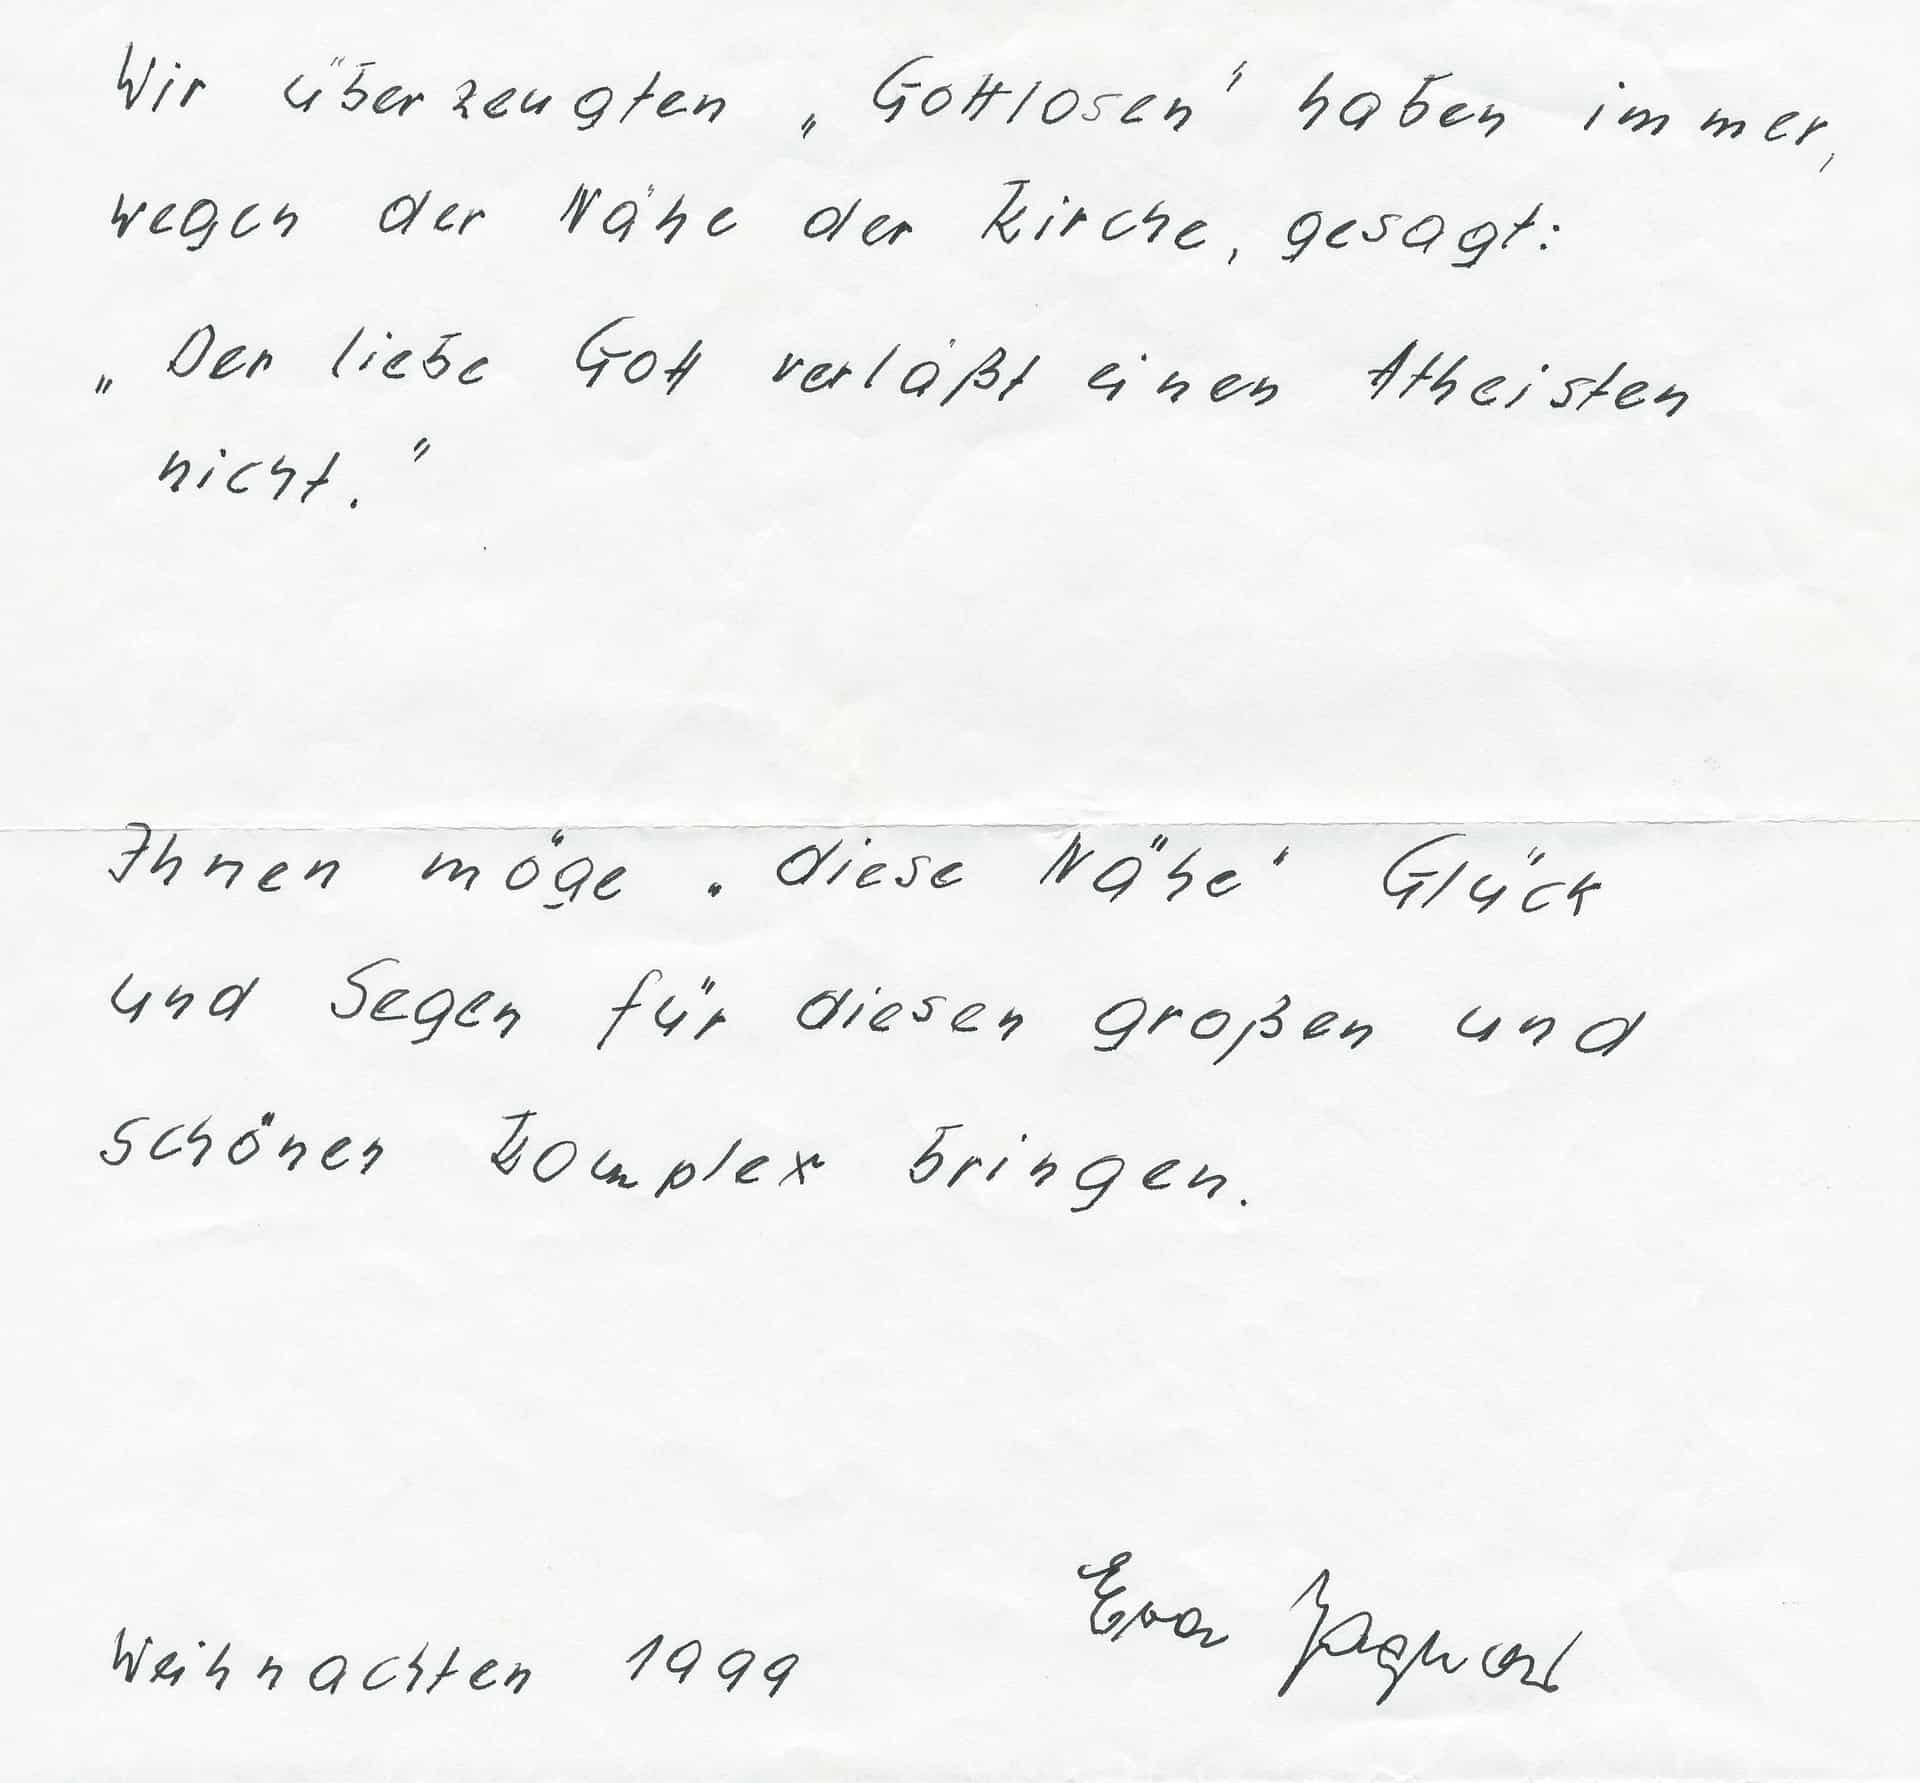 Wir überzeugten „Gottlosen" haben immer,
wegen der Nähe der Kirche, gesagt:
„Der liebe Gott verläßt einen Atheisten
nicht."
Ihnen möge „diese Nähe" Glück
und Segen für diesen großen und
schönen Komplex bringen.
Eva
Weihnachten 1999